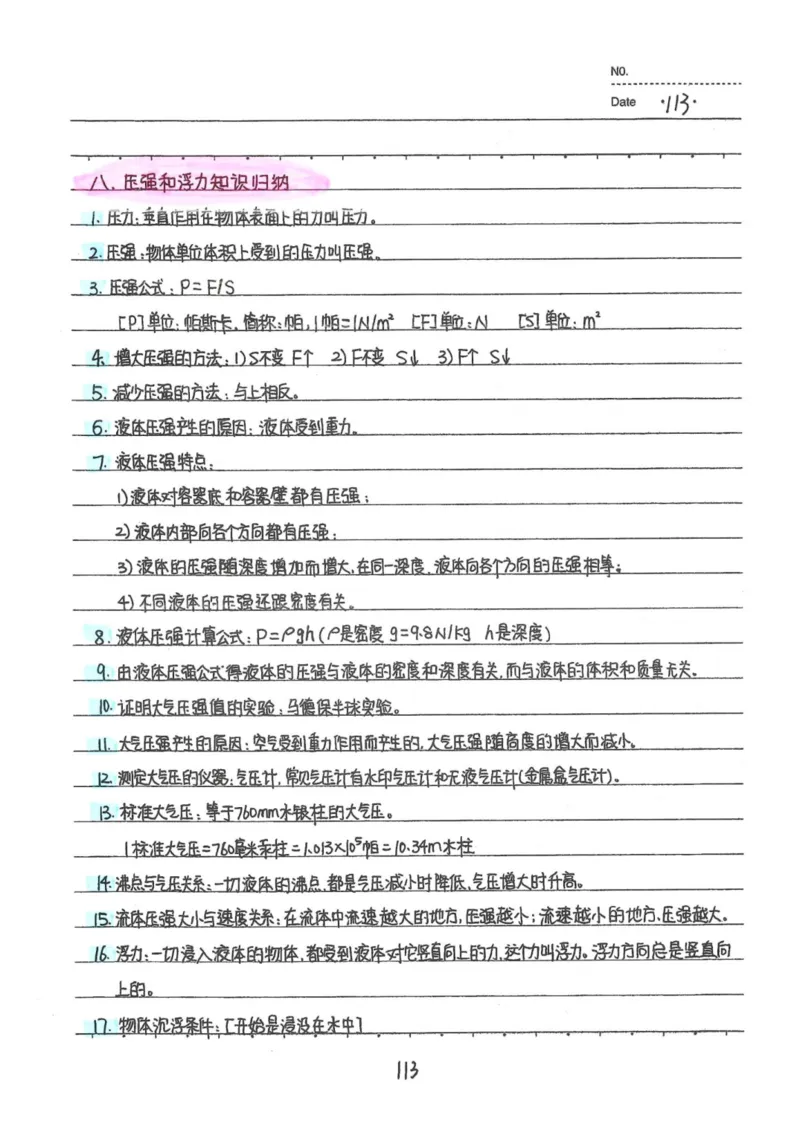 NO.
Date ·113·
八. 压强和浮力知识归纳
1. 压力：垂直作用在物体表面上的力叫压力。
2. 压强：物体单位体积上受到的压力叫压强。
3. 压强公式：P=F/S
[P]单位：帕斯卡，简称：帕，1帕=1N/m² [F]单位：N [S]单位：m²
4. 增大压强的方法：1)S不变 F↑ 2)F不变 S↓ 3)F↑ S↓
5. 减少压强的方法：与上相反。
6. 液体压强产生的原因：液体受到重力。
7. 液体压强特点：
1)液体对容器底和容器壁都有压强；
2)液体内部向各个方向都有压强；
3)液体的压强随深度增加而增大，在同一深度，液体向各个方向的压强相等；
4)不同液体的压强还跟密度有关。
8. 液体压强计算公式：P=ρgh(ρ是密度 g=9.8N/kg h是深度)
9. 由液体压强公式得液体的压强与液体的密度和深度有关，而与液体的体积和质量无关。
10. 证明大气压强值的实验：马德保半球实验。
11. 大气压强产生的原因：空气受到重力作用而产生的，大气压强随高度的增大而减小。
12. 测定大气压的仪器：气压计，常见气压计有水印气压计和无液气压计(金属盒气压计)。
13. 标准大气压：等于760mm水银柱的大气压。
1标准大气压=760毫米汞柱=1.013×10⁵帕=10.34m水柱
14. 沸点与气压关系：一切液体的沸点，都是气压减小时降低，气压增大时升高。
15. 流体压强大小与速度关系：在流体中流速越大的地方，压强越小；流速越小的地方，压强越大。
16. 浮力：一切浸入液体的物体，都受到液体对它竖直向上的力，这个力叫浮力。浮力方向总是竖直向
上的。
17. 物体沉浮条件：[开始是浸没在水中]
113